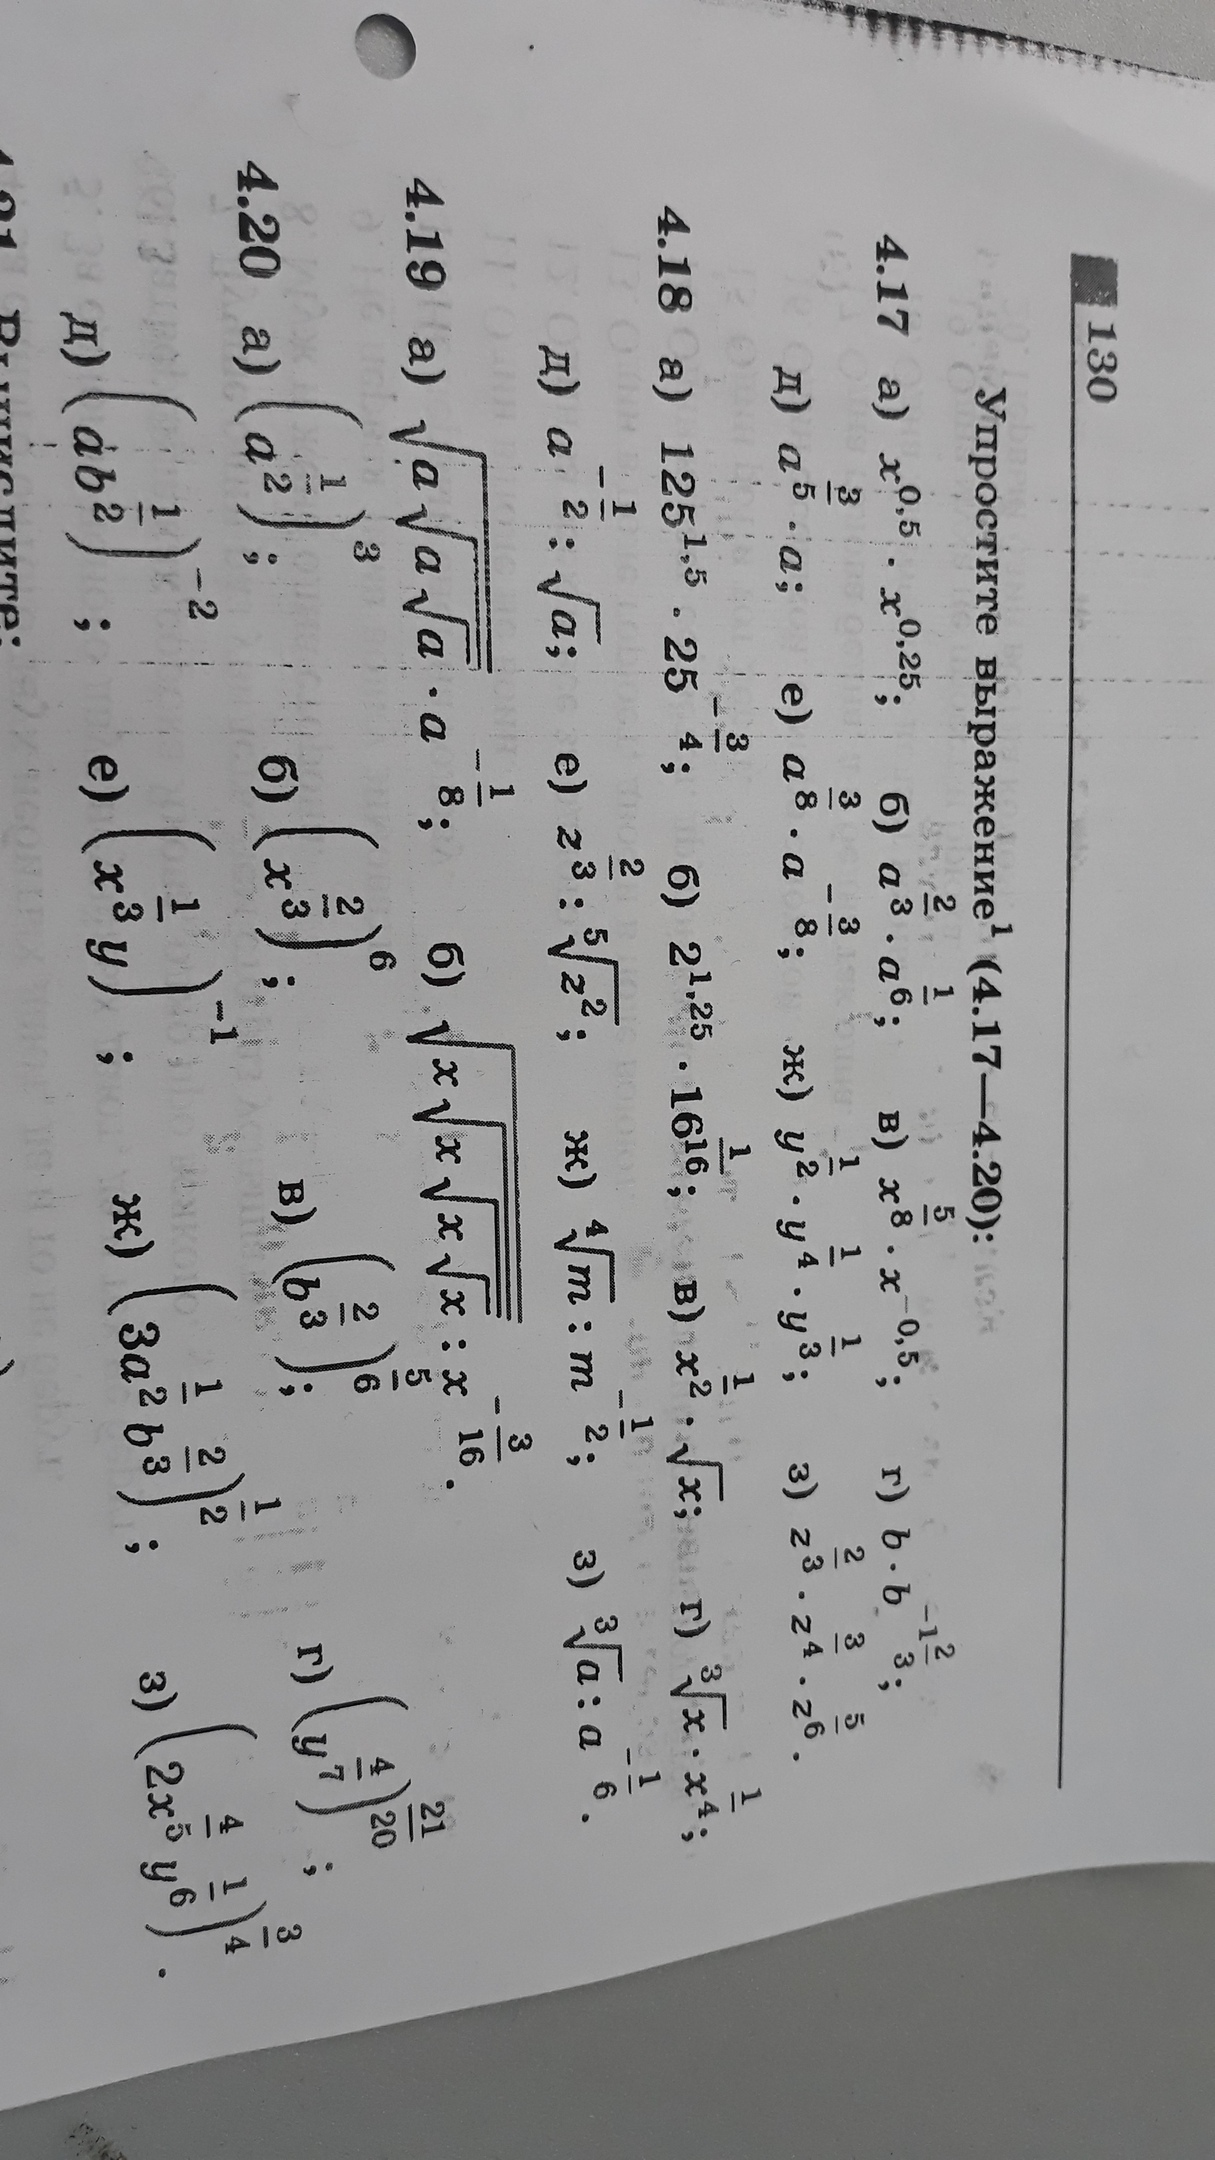 130
Упростите выражение¹ (4.17—4.20):
4.17 а) x^{0,5} · x^{0,25}; б) a^{2/3} · a^{1/6}; в) x^{5/8} · x^{-0,5}; г) b · b^{-1 2/3};
д) a^{3/5} · a; е) a^{3/8} · a^{-3/8}; ж) y^{1/2} · y^{1/4} · y^{1/3}; з) z^{2/3} · z^{3/4} · z^{5/6}.
4.18 а) 125^{1,5} · 25^{-3/4}; б) 2^{1,25} · 16^{1/16}; в) x^{1/2} · √x; г) ∛x · x^{1/4};
д) a^{-1/2} : √a; е) z^{2/3} : ⁵√(z²); ж) ⁴√m : m^{-1/2}; з) ∛a : a^{-1/6}.
4.19 а) √(a√(a√a)) · a^{-1/8}; б) √(x√(x√(x√x))) : x^{-3/16}.
4.20 а) (a^{1/2})^3; б) (x^{2/3})^6; в) (b^{2/3})^{5/6}; г) (y^{4/7})^{21/20};
д) (ab^{1/2})^{-2}; е) (x^{1/3}y)^{-1}; ж) (3a^{1/2}b^{2/3})^{1/2}; з) (2x^{4/5}y^{1/6})^{3/4}.